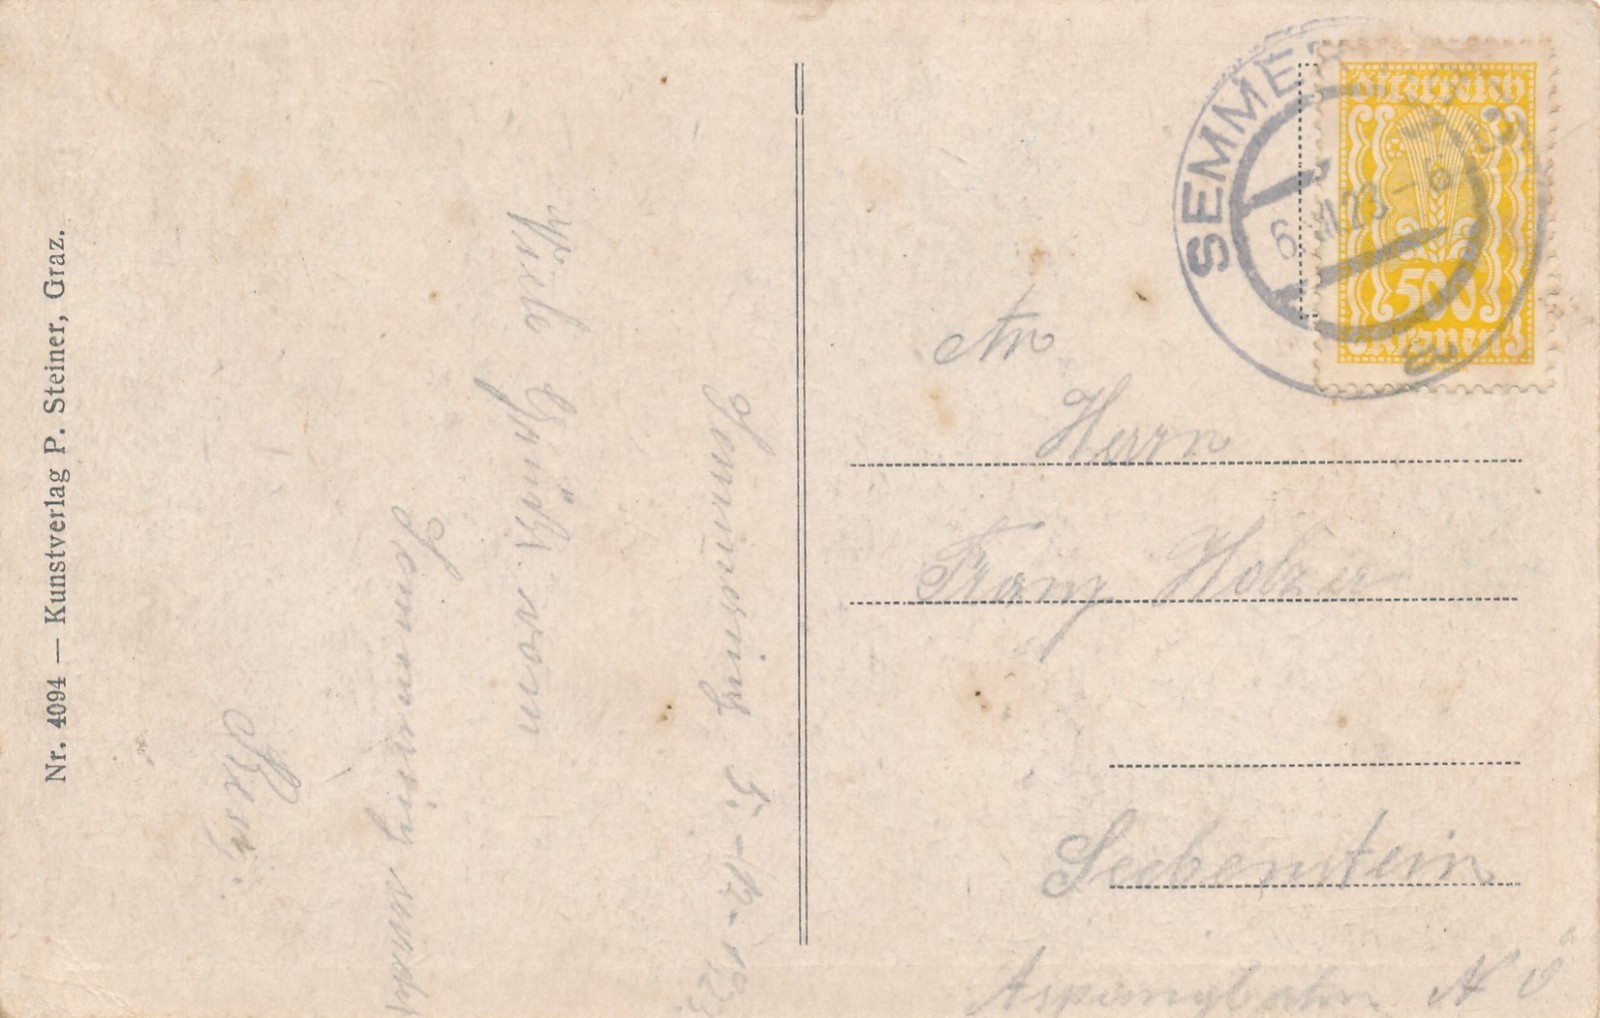 Nr. 4094 — Kunstverlag P. Steiner, Graz.
Semmering 5.-12-1923.
Viele Grüße vom
Semmering sendet
SEMME
6.XII.23
Österreich
500
Kronen
An
Herrn
Franz Holzer
Seebenstein
Aspangbahn N Ö